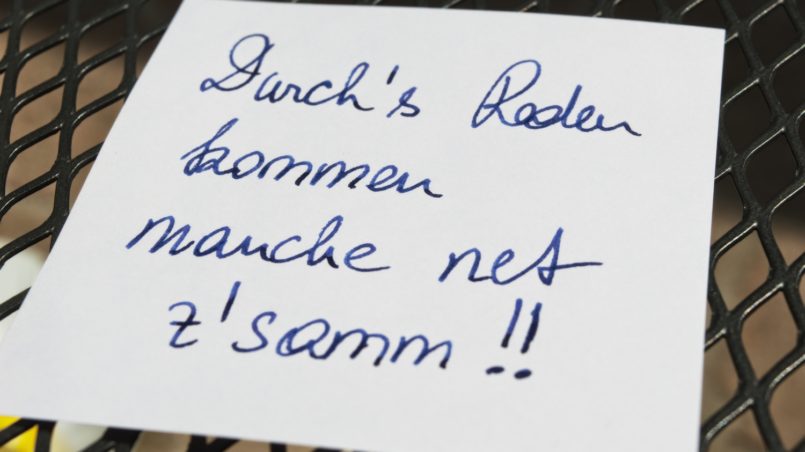 Durch's Reden
kommen
manche net
z'samm!!